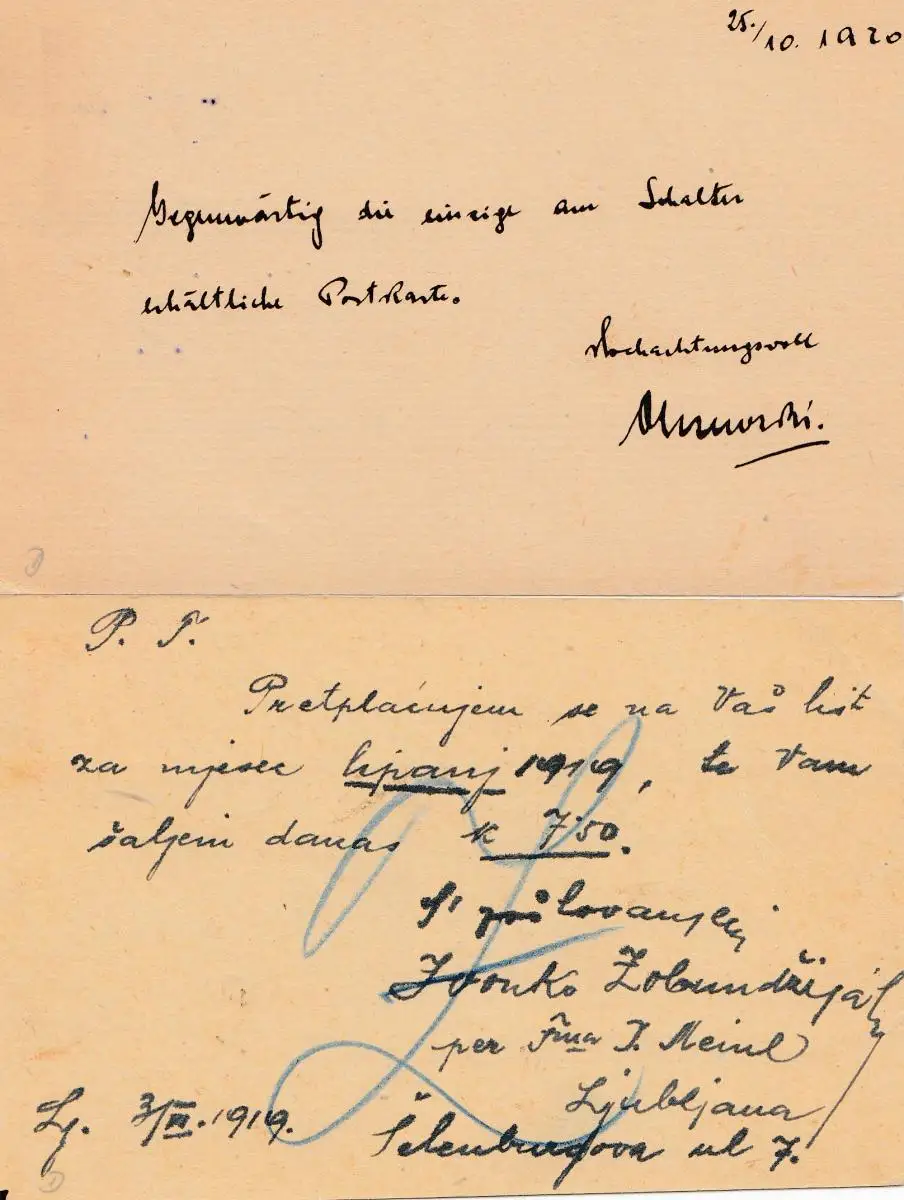 25./10. 1920
Gegenwärtig die einzige am Schalter
erhältliche Postkarte.
Hochachtungsvoll
P. T.
Pretplaćujem se na Vaš list
za mjesec lipanj 1919, te Vam
šaljem danas K 7·50.
S' poštovanjem
Zvonko Žobundžija
per Fma J. Meinl
Ljubljana
Šelenburgova ul 7.
Lj. 3/VI. 1919.